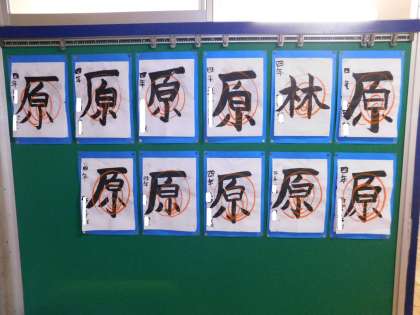 四年 原
四年 原
四年 原
四年 原
四年 林
四年 原
四年 原
四年 原
四年 原
四年 原
四年 原